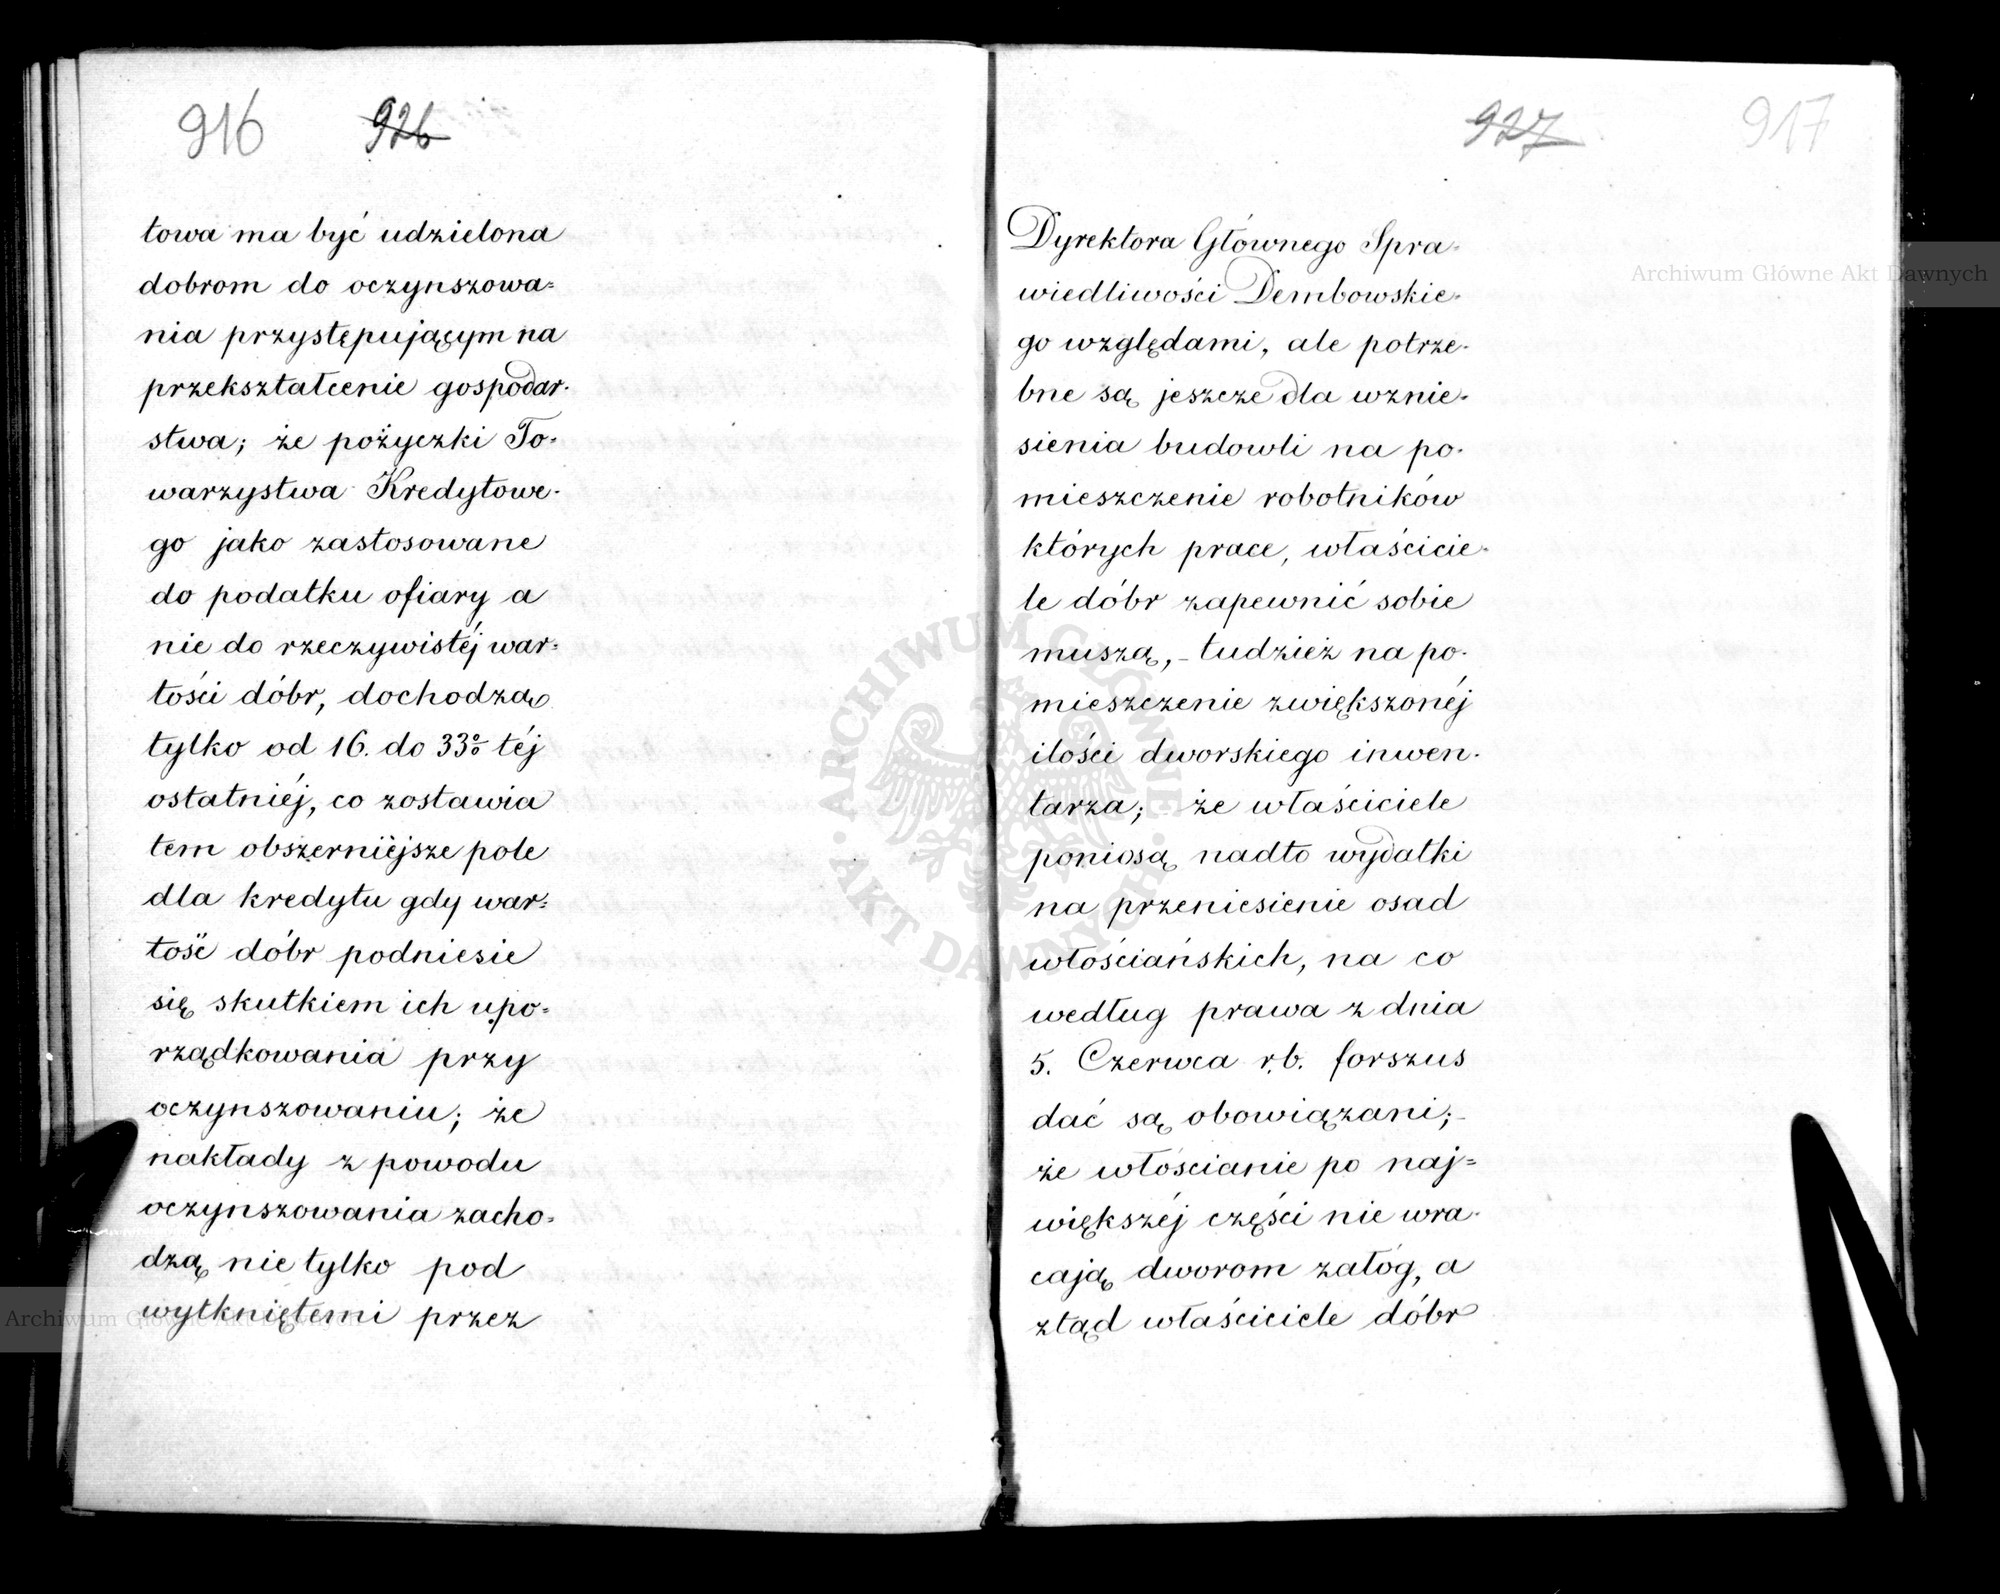 916 926
towa ma być udzielona
dobrom do oczynszowa=
nia przystępującym na
przekształcenie gospodar-
stwa; że pożyczki To-
warzystwa Kredytowe-
go jako zastosowane
do podatku ofiary a
nie do rzeczywistéj war=
tości dóbr, dochodzą
tylko od 16. do 33% téj
ostatniéj, co zostawia
tem obszerniéjsze pole
dla kredytu gdy war=
tość dóbr podniesie
się skutkiem ich upo=
rządkowania przy
oczynszowaniu; że
nakłady z powodu
oczynszowania zacho=
dzą nie tylko pod
wytkniętemi przez
927 917
Dyrektora Głównego Spra-
wiedliwości Dembowskie-
go względami, ale potrze-
bne są jeszcze dla wznie-
sienia budowli na po-
mieszczenie robotników
których prace, właścicie-
le dóbr zapewnić sobie
muszą, – tudzież na po-
mieszczenie zwiększonéj
ilości dworskiego inwen-
tarza; że właściciele
poniosą nadto wydatki
na przeniesienie osad
włościańskich, na co
według prawa z dnia
5. Czerwca r.b. forszus
dać są obowiązani; –
że włościanie po naj=
większéj części nie wra-
cają dworom załóg, a
ztąd właściciele dóbr
Archiwum Główne Akt Dawnych
Archiwum Główne Akt Dawnych
ARCHIWUM GŁÓWNE · AKT DAWNYCH ·